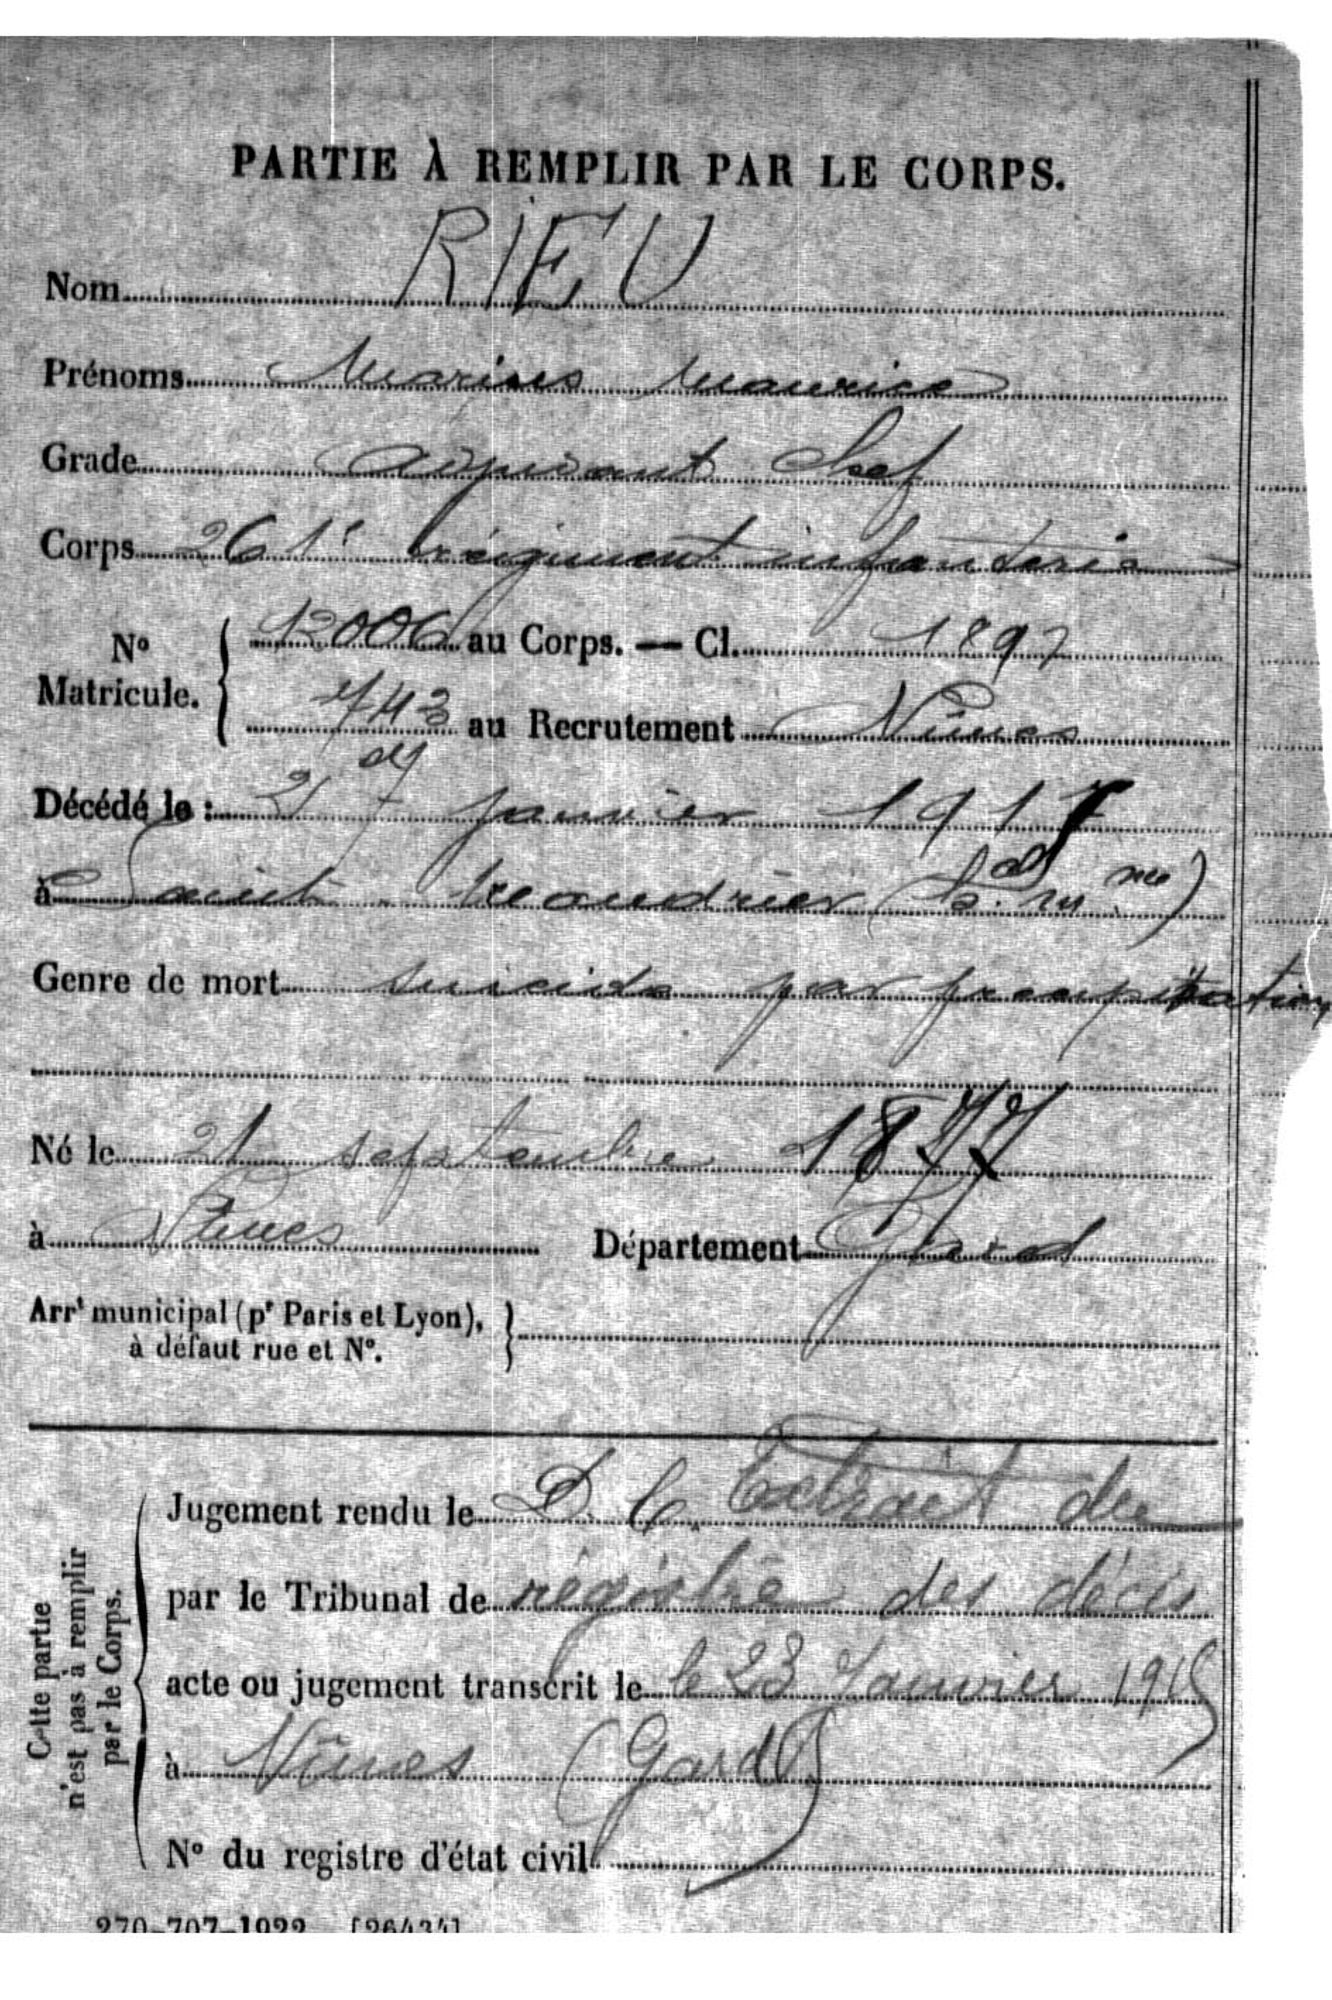 PARTIE À REMPLIR PAR LE CORPS.
Nom RIEU
Prénoms Marius Maurice
Grade adjudant Chef
Corps 261e régiment infanterie
No 12006 au Corps. — Cl. 1897
Matricule. 743 au Recrutement Nîmes
Décédé le : 21 janvier 1915
à Saint Mandrier
Genre de mort suicide par précipitation
Né le 21 septembre 1877
à Nîmes Département Gard
Arrt municipal (pr Paris et Lyon),
à défaut rue et No.
Cette partie
n'est pas à remplir
par le Corps.
Jugement rendu le D. C. Extrait du
par le Tribunal de régistre des décès
acte ou jugement transcrit le le 23 Janvier 1915
à Nîmes (Gard)
No du registre d'état civil
270-707-1922 [26434]